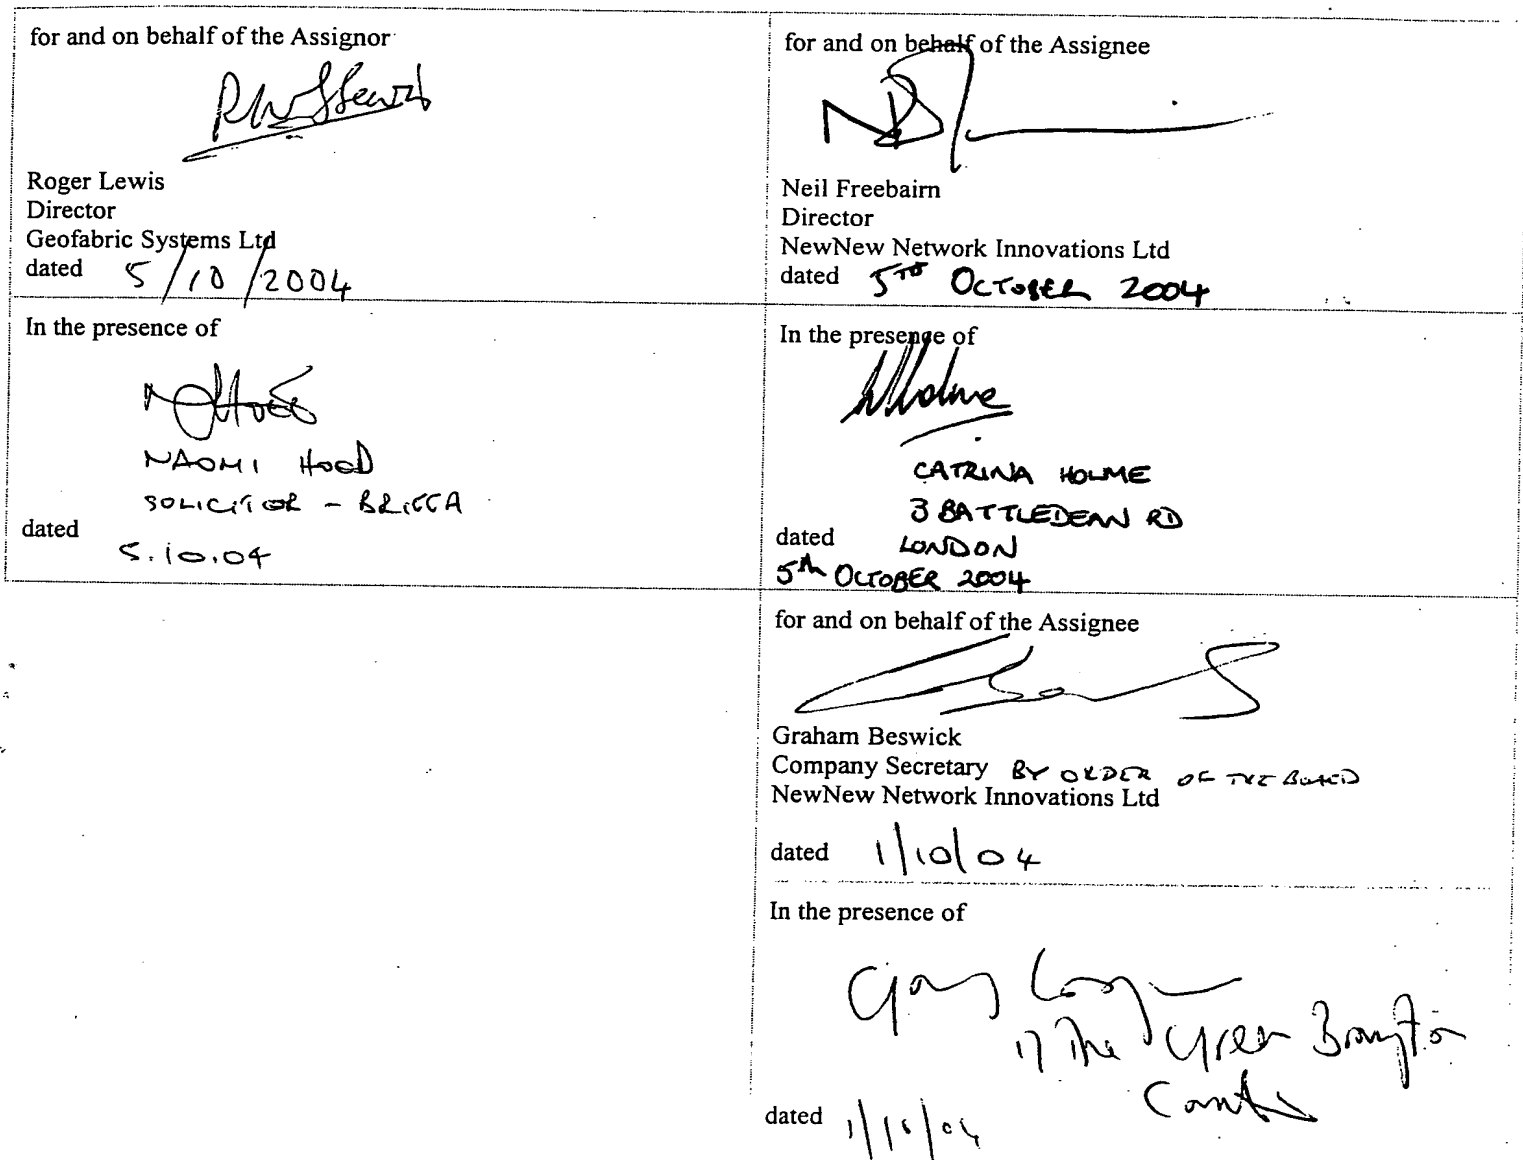 for and on behalf of the Assignor
Roger Lewis
Director
Geofabric Systems Ltd
dated 5/10/2004
In the presence of
NAOMI HOOD
SOLICITOR -
dated
5.10.04
for and on behalf of the Assignee
Neil Freebairn
Director
NewNew Network Innovations Ltd
dated 5TH OCTOBER 2004
In the presence of
CATRINA HOLME
3 BATTLEDEAN RD
dated LONDON
5th OCTOBER 2004
for and on behalf of the Assignee
Graham Beswick
Company Secretary BY ORDER OF THE BOARD
NewNew Network Innovations Ltd
dated 1/10/04
In the presence of
17 The Green
dated 1/10/04